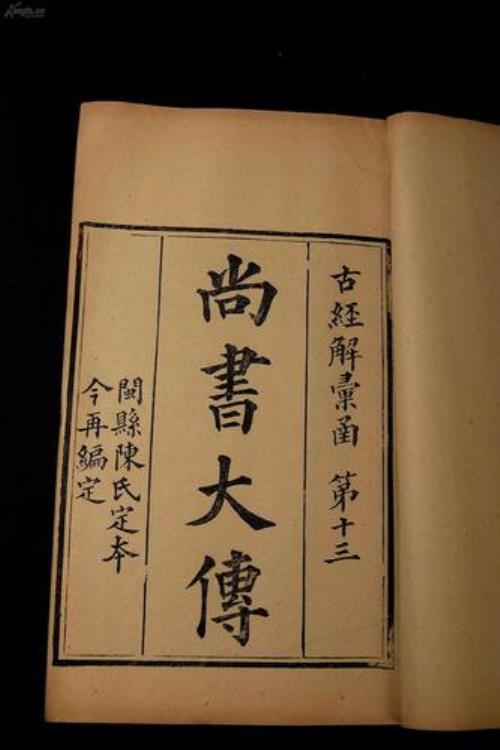 古經解彙函 第十三
尚書大傳
閩縣陳氏定本
今再編定